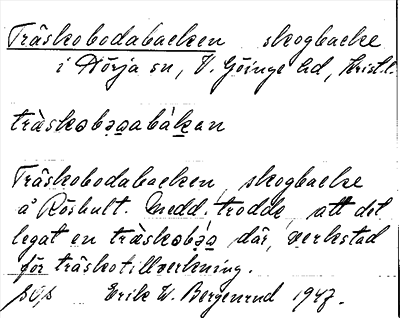 Träskobodabacken skogbacke
i Nörja sn, V. Göinge hd, Krist.l.
träskobo̱a̱bàḵan
Träskobodabacken, skogbacke
å Röshult. Medd. trodde, att det
legat en träskobó̱a̱ där, verkstad
för träskotillverkning.
Erik W. Bergenrud 1947.